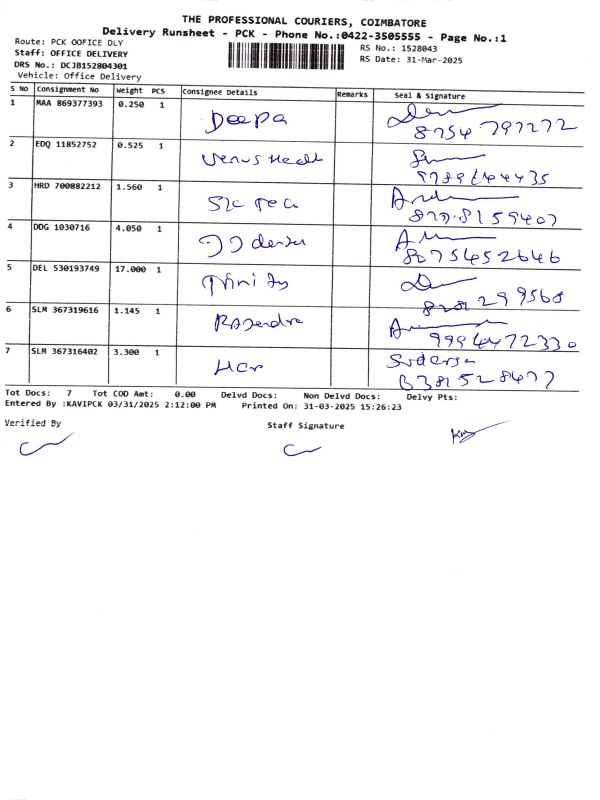 THE PROFESSIONAL COURIERS, COIMBATORE
Delivery Runsheet - PCK - Phone No.:0422-3505555 - Page No.:1
Route: PCK OOFICE DLY
Staff: OFFICE DELIVERY
DRS No.: DCJB152804301
Vehicle: Office Delivery
RS No.: 1528043
RS Date: 31-Mar-2025
S No Consignment No Weight PCS Consignee Details Remarks Seal & Signature
1 MAA 869377393 0.250 1 Deepa
8754 797272
2 EDQ 11852752 0.525 1 Venus Health
3 HRD 700882212 1.560 1
4 DDG 1030716 4.050 1
8075452646
5 DEL 530193749 17.000 1 Trinity
6 SLM 367319616 1.145 1 Rajendra
9994472330
7 SLM 367316402 3.300 1
Tot Docs: 7 Tot COD Amt: 0.00 Delvd Docs: Non Delvd Docs: Delvy Pts:
Entered By :KAVIPCK 03/31/2025 2:12:00 PM Printed On: 31-03-2025 15:26:23
Verified By Staff Signature